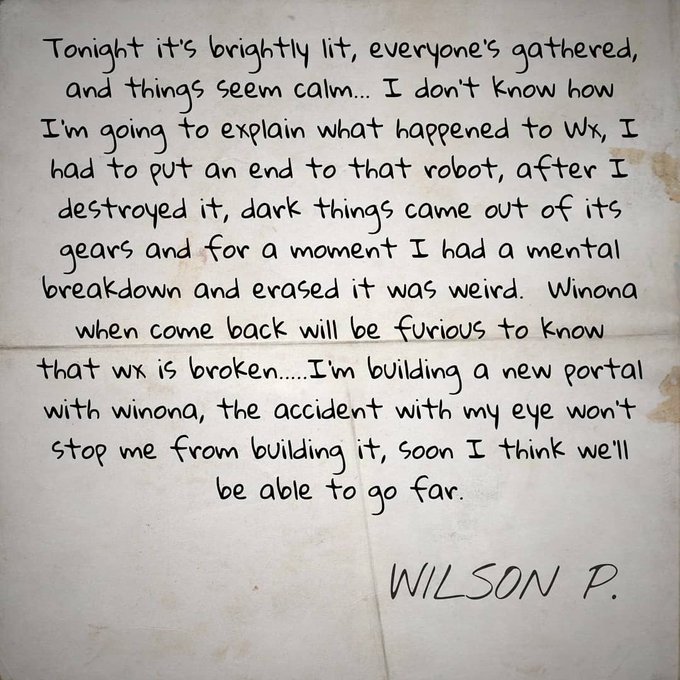 Tonight it's brightly lit, everyone's gathered,
and things seem calm... I don't know how
I'm going to explain what happened to Wx, I
had to put an end to that robot, after I
destroyed it, dark things came out of its
gears and for a moment I had a mental
breakdown and erased it was weird. Winona
when come back will be furious to know
that wx is broken.....I'm building a new portal
with winona, the accident with my eye won't
stop me from building it, soon I think we'll
be able to go far.
WILSON P.